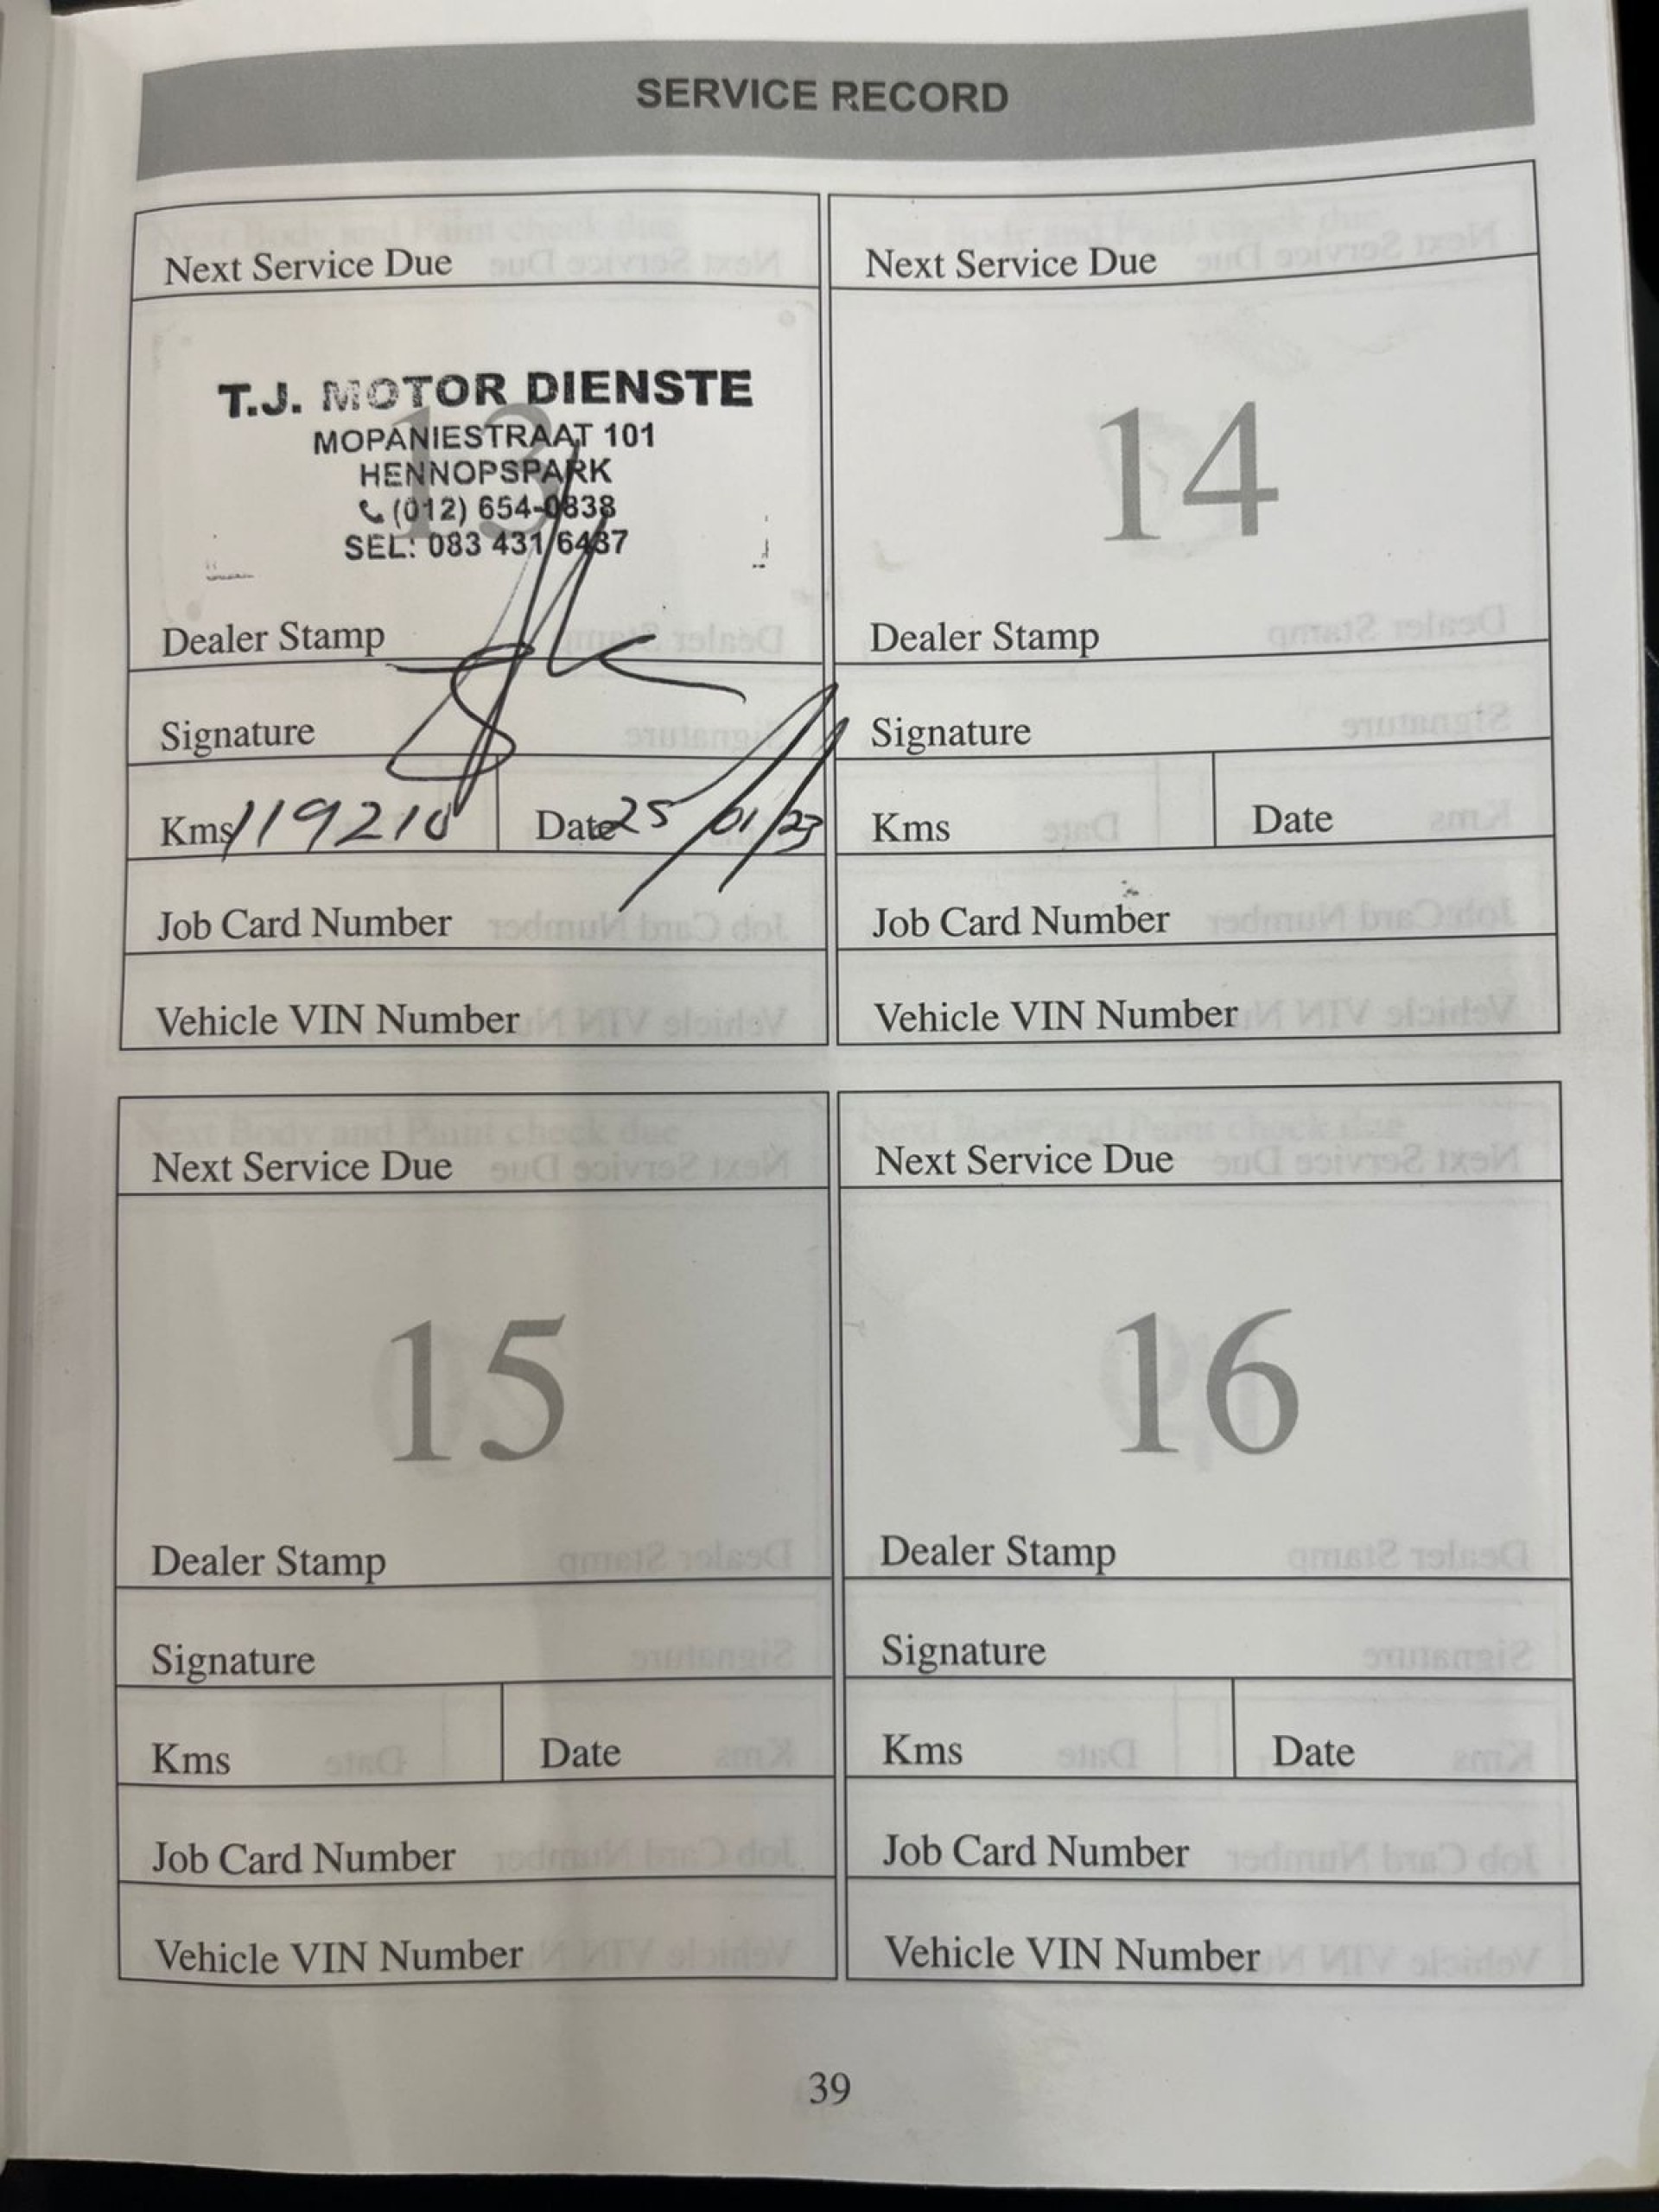 SERVICE RECORD
Next Service Due
13
T.J. MOTOR DIENSTE
MOPANIESTRAAT 101
HENNOPSPARK
(012) 654-0838
SEL: 083 431 6437
Dealer Stamp
Signature
Kms 119210
Date 25/01/23
Job Card Number
Vehicle VIN Number
Next Service Due
14
Dealer Stamp
Signature
Kms
Date
Job Card Number
Vehicle VIN Number
Next Service Due
15
Dealer Stamp
Signature
Kms
Date
Job Card Number
Vehicle VIN Number
Next Service Due
16
Dealer Stamp
Signature
Kms
Date
Job Card Number
Vehicle VIN Number
39